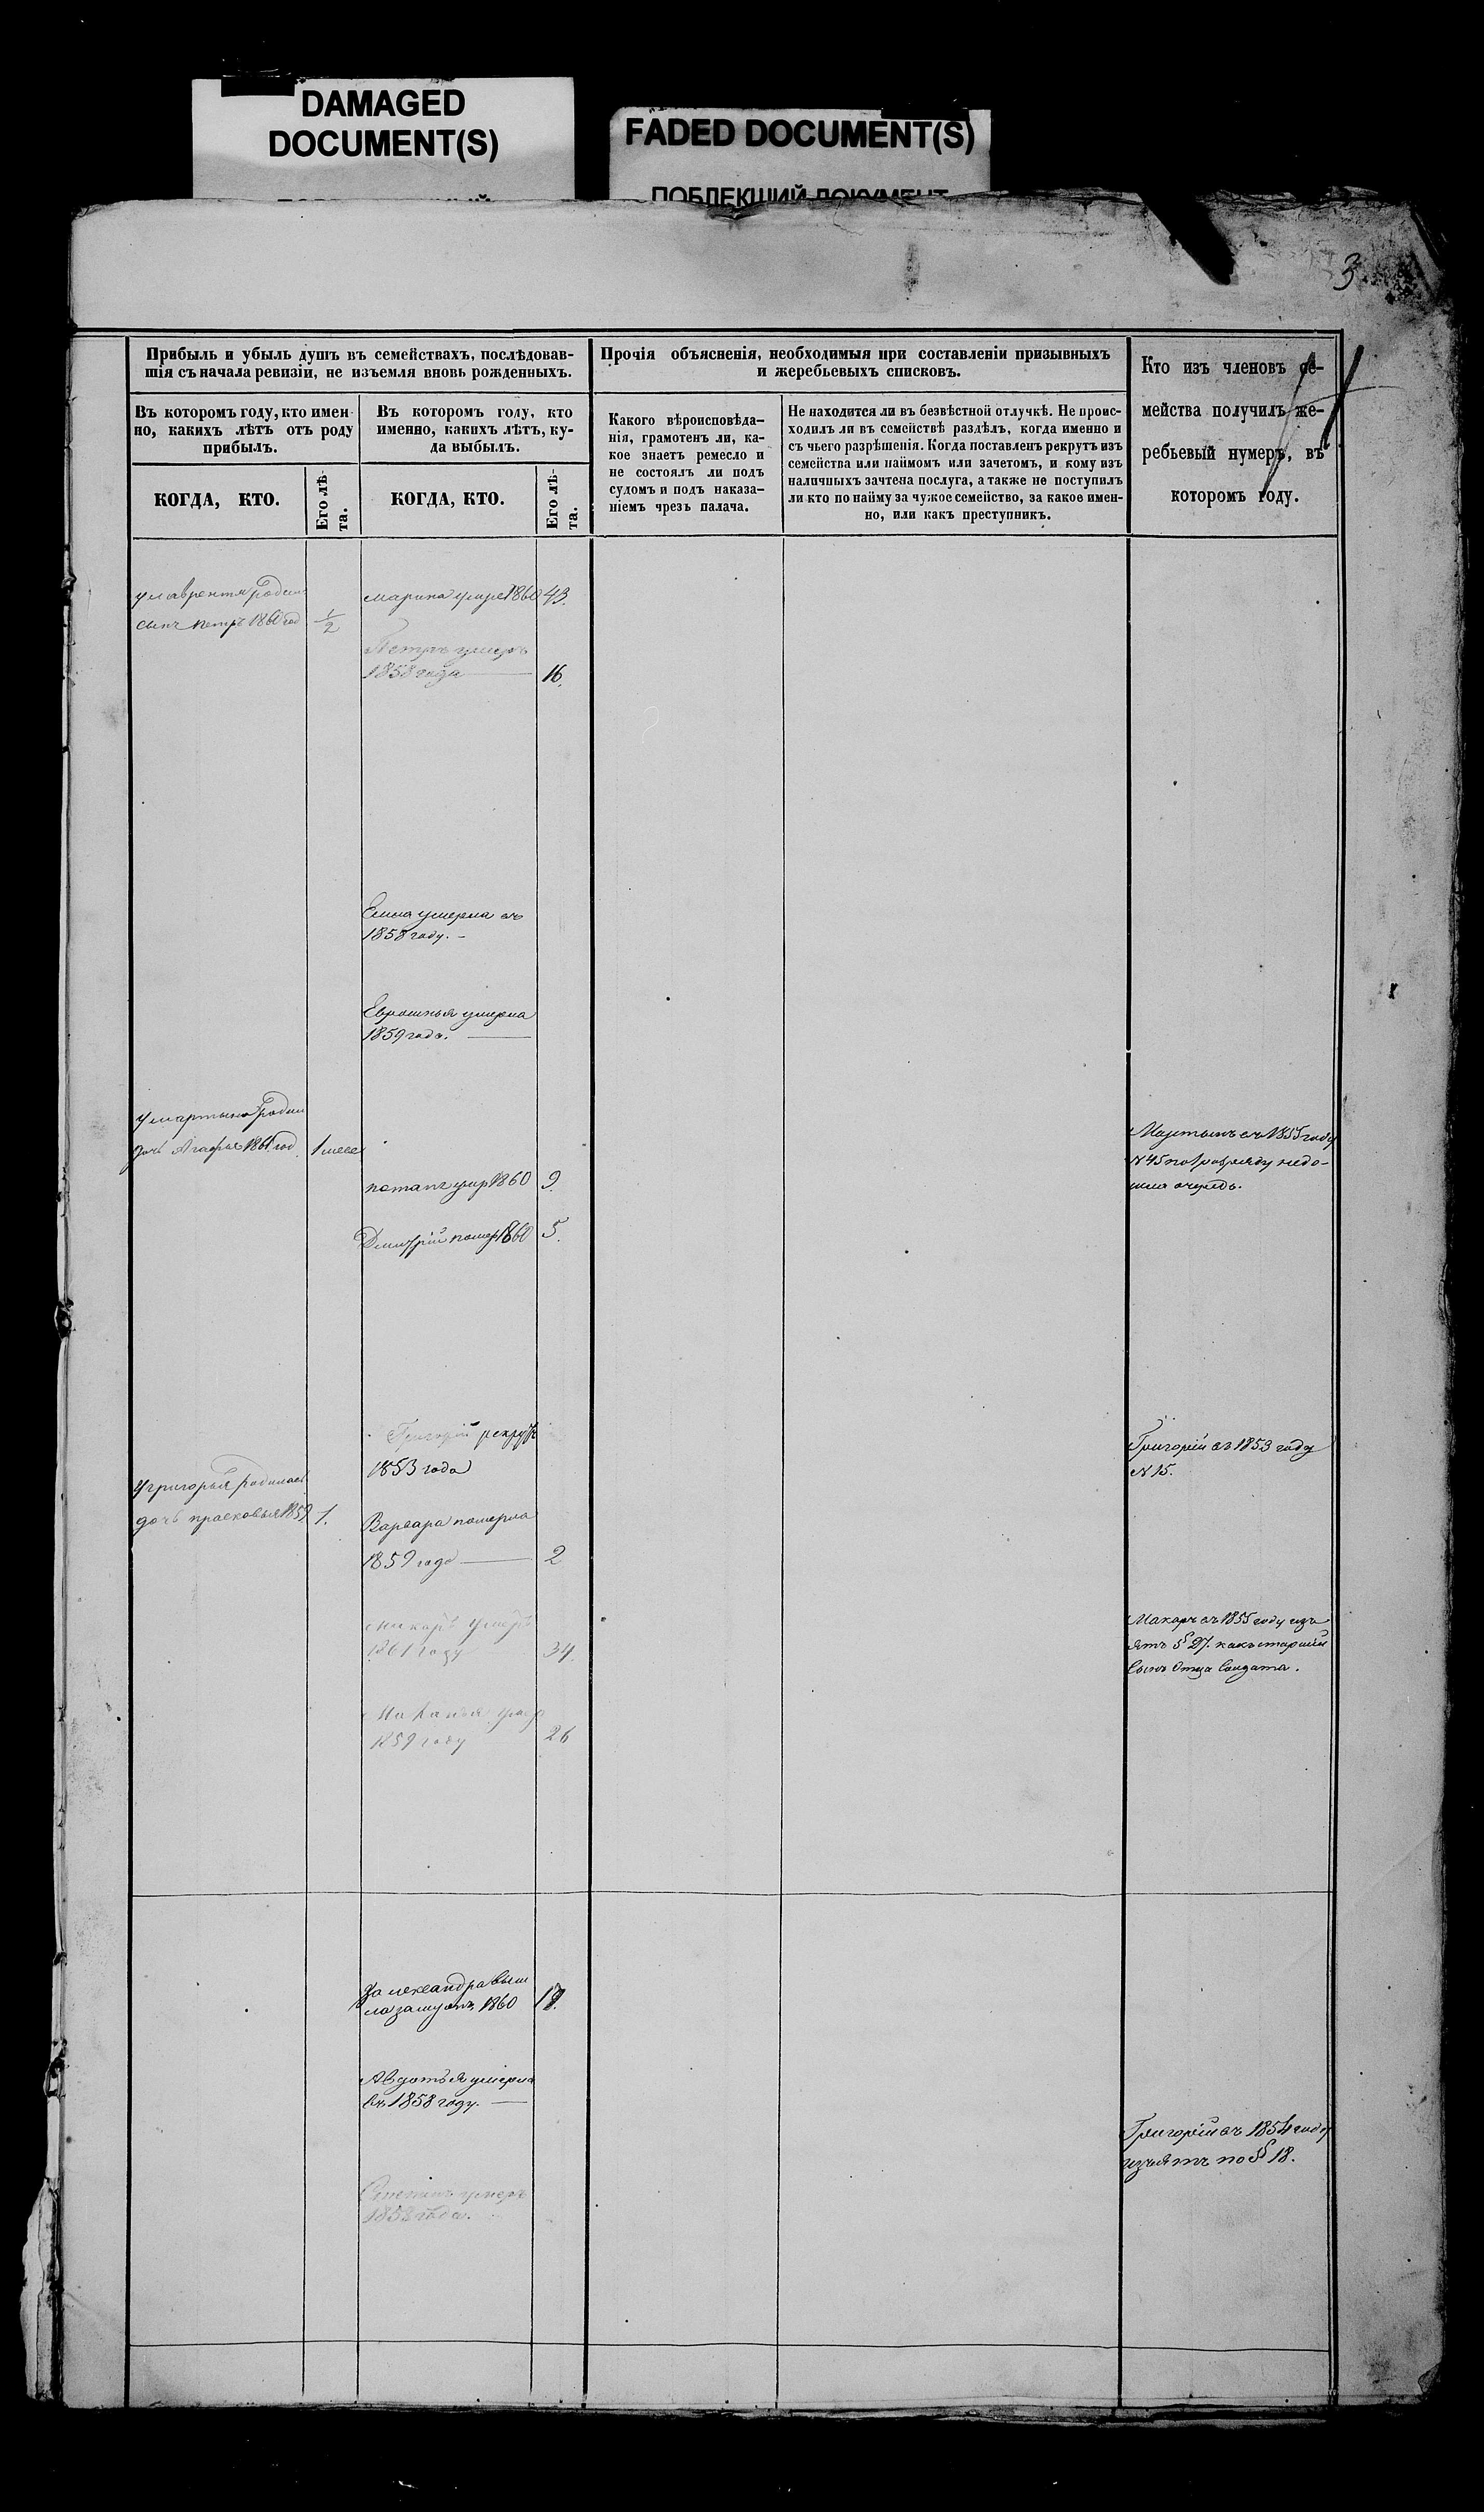 DAMAGED
DOCUMENT(S)
FADED DOCUMENT(S)
ПОБЛЕКШИЙ ДОКУМЕНТ
3
Прибыль и убыль душъ въ семействахъ, послѣдовав-
шія съ начала ревизіи, не изъемля вновь рожденныхъ.
Въ которомъ году, кто имен-
но, какихъ лѣтъ отъ роду
прибылъ.
КОГДА, КТО.
Его лѣ-
та.
Въ которомъ году, кто
именно, какихъ лѣтъ, ку-
да выбылъ.
КОГДА, КТО.
Его лѣ-
та.
Прочія объясненія, необходимыя при составленіи призывныхъ
и жеребьевыхъ списковъ.
Какого вѣроисповѣда-
нія, грамотенъ ли, ка-
кое знаетъ ремесло и
не состоялъ ли подъ
судомъ и подъ наказа-
ніемъ чрезъ палача.
Не находится ли въ безвѣстной отлучкѣ. Не проис-
ходилъ ли въ семействѣ раздѣлъ, когда именно и
съ чьего разрѣшенія. Когда поставленъ рекрутъ изъ
семейства или наймомъ или зачетомъ, и кому изъ
наличныхъ зачтена послуга, а также не поступилъ
ли кто по найму за чужое семейство, за какое имен-
но, или какъ преступникъ.
Кто изъ членовъ се-
мейства получилъ же-
ребьевый нумеръ, въ
которомъ году.
у лаврентия Родил
сынъ петръ 1860 год 1/2
марина умре 1860 43.
Петръ умеръ
1858 года 16.
умерла въ
1858 году. –
умерла
1859 года.
у мартына Родил
дочь Агафья 1861 год. 1 месе
потапъ умр 1860 9.
Дмитрій помер 1860 5.
Мартынъ въ 1855 году
№ 45 по разряду недо-
шла очередь.
Григорій рекрутъ
1853 года
Григорій въ 1853 году
№ 15.
у григорья родилась
дочь прасковья 1859 1.
Варвара померла
1859 года 2
макаръ умеръ
1861 году 34
Макаръ въ 1855 году изъ
ятъ § 27. какъ старший
сынъ Отца Солдата.
умер
1859 году 26
вы
ла замужъ 1860
Авдотья умерла
въ 1858 году.
Григорій въ 1854 году
изъятъ по § 18.
умеръ
1858 года.